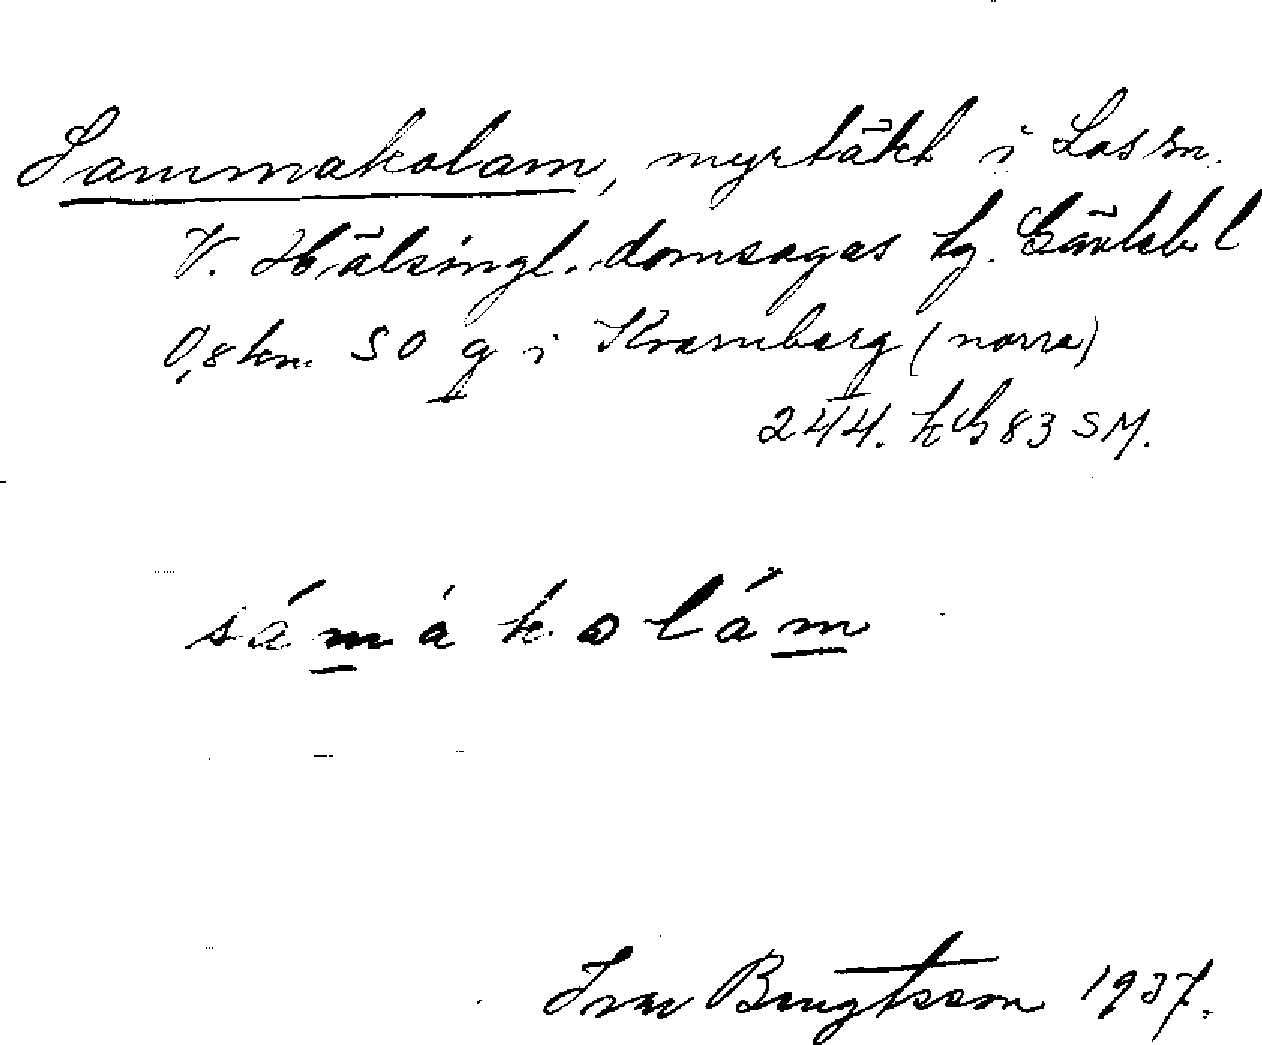 Sammakolam, myrtäkt i Los sn.
V. Hälsingl. domsagas tg. Gävleb. l
0,8 km SO g i Kvarnberg (norra)
244. h G 83 SM.
sámákolám
Ivar Bengtsson 1937.